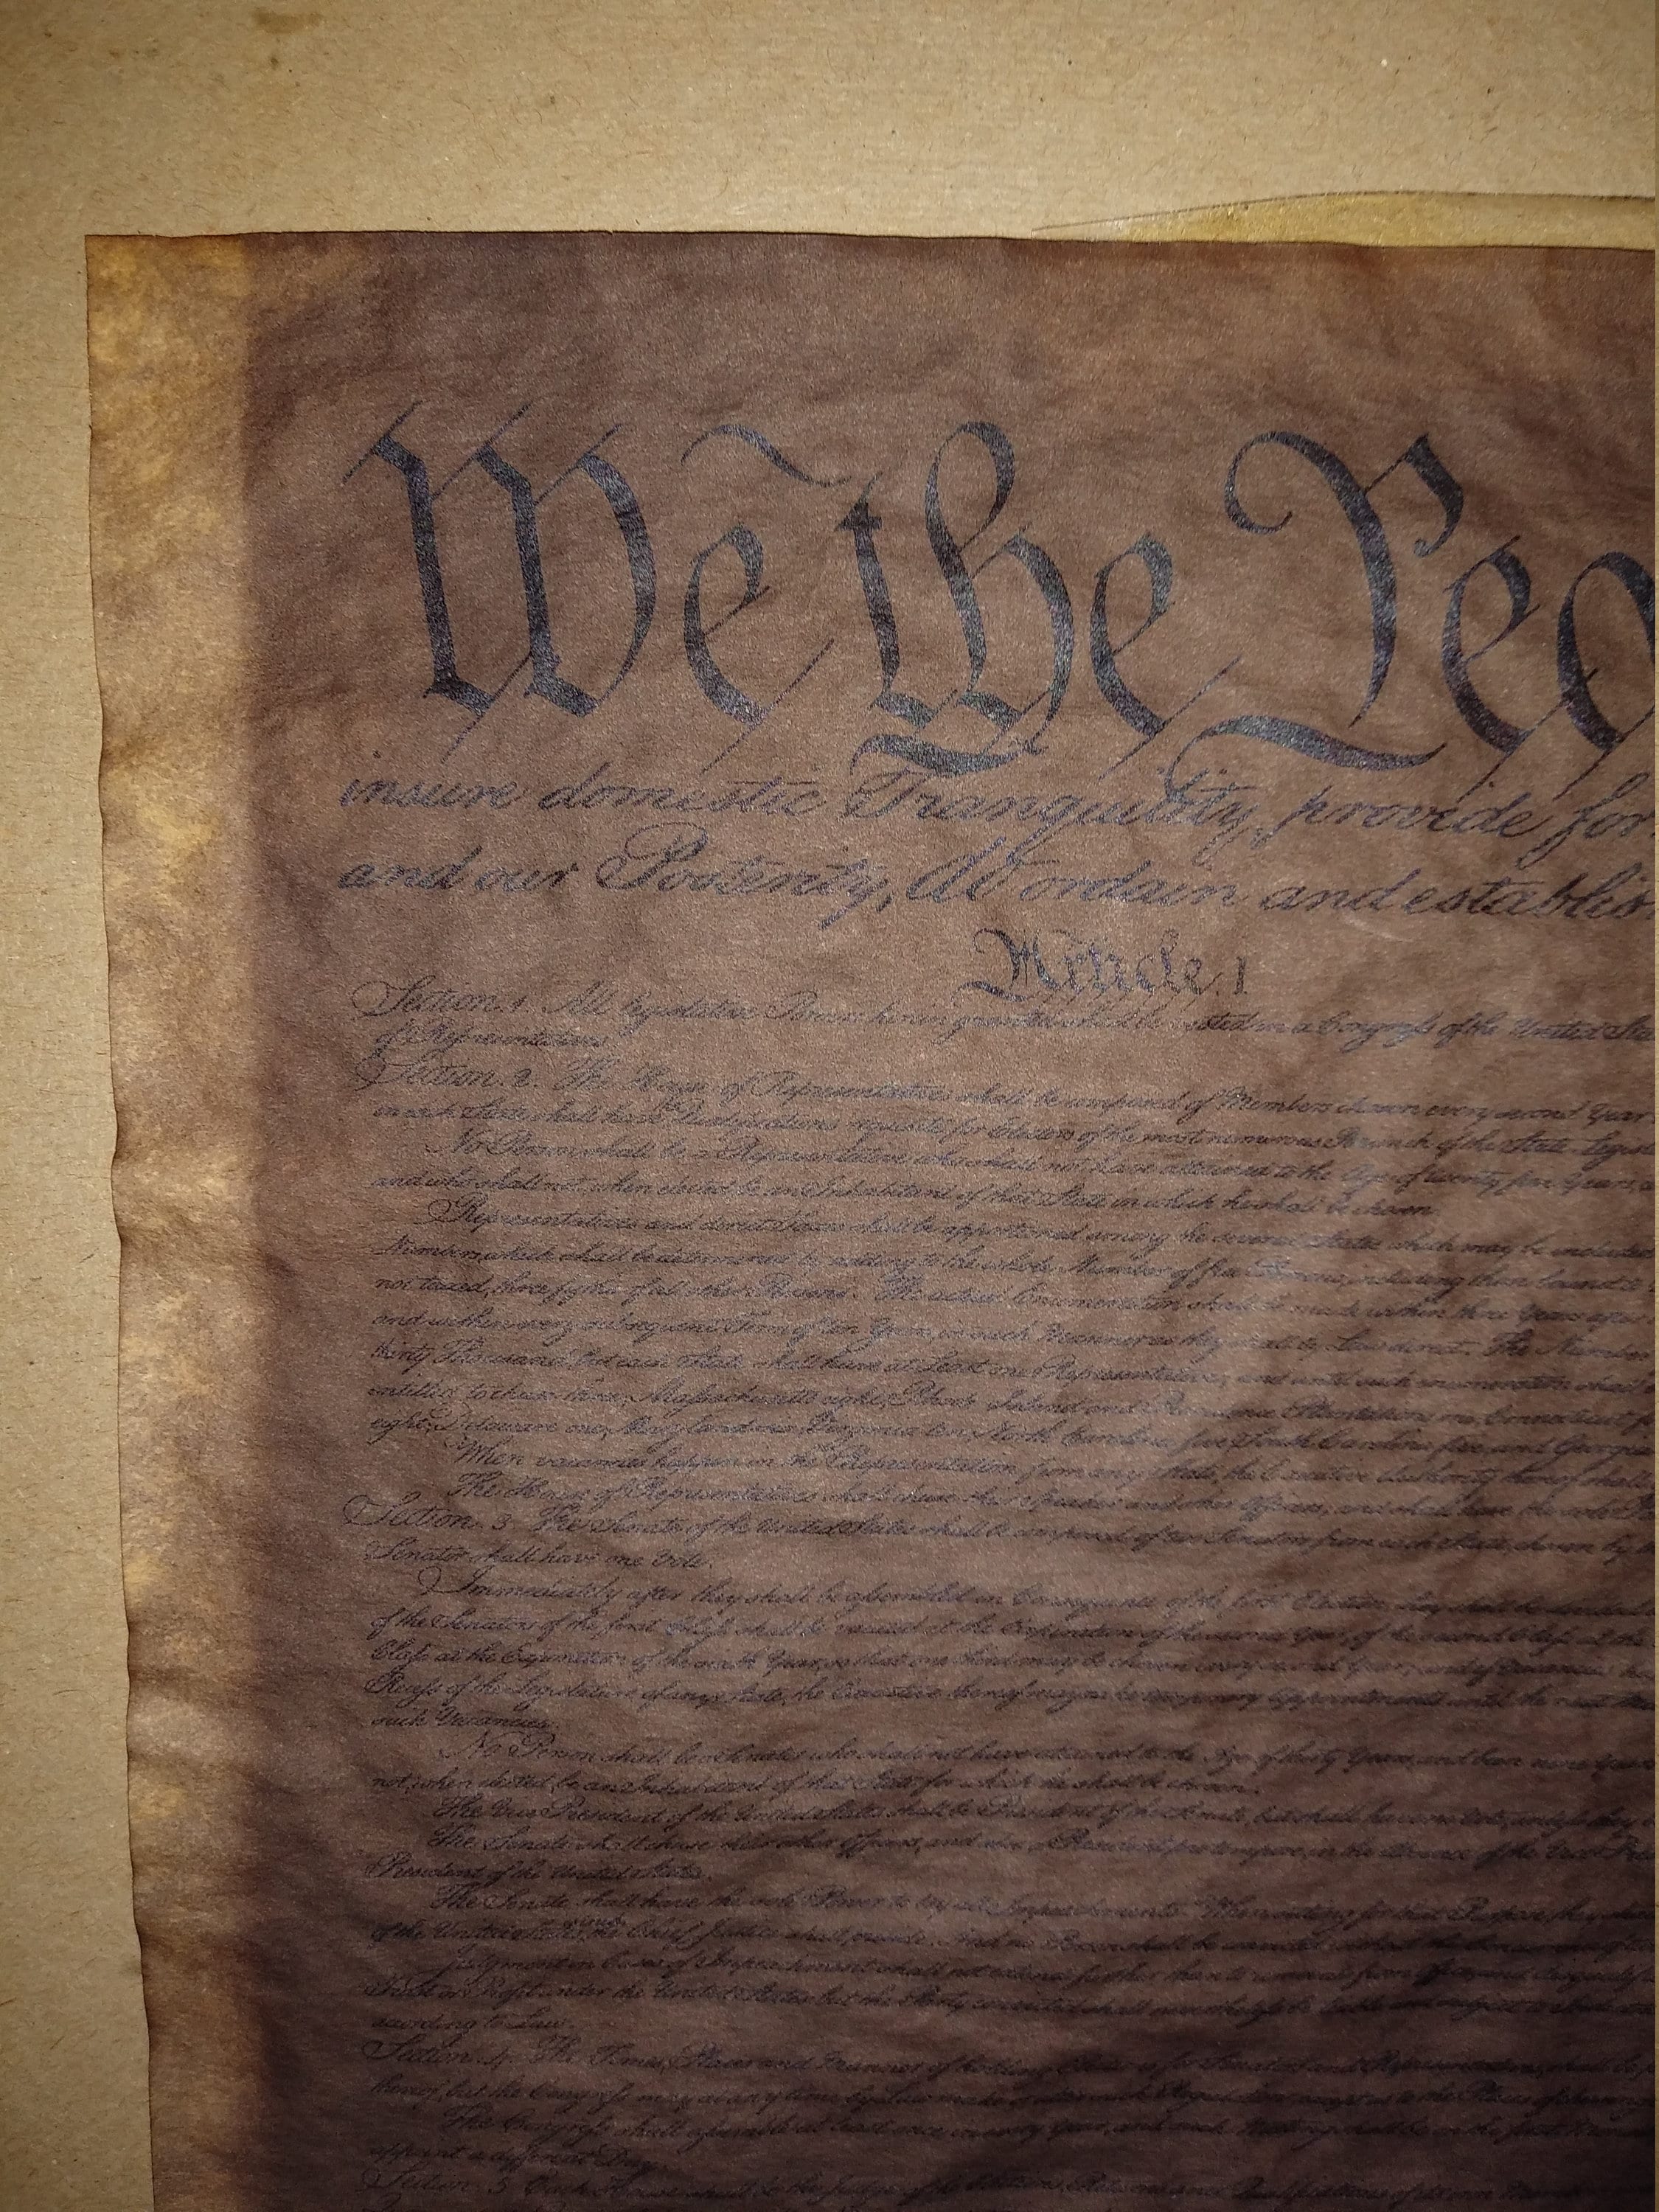 We the Peo
insure domestic Tranquility, provide for
and our Posterity, do ordain and establish
Article. I
Section. 1. All legislative Powers herein granted shall be vested in a Congress of the United Sta
of Representatives
Section. 2. The House of Representatives shall be composed of Members chosen every second Year
in each State shall have Qualifications requisite for Electors of the most numerous Branch of the State Legisl
No Person shall be a Representative who shall not have attained to the Age of twenty five Years, a
and who shall not, when elected, be an Inhabitant of that State in which he shall be chosen.
Representatives and direct Taxes shall be apportioned among the several States which may be included
Numbers, which shall be determined by adding to the whole Number of free Persons, including those bound to
not taxed, three fifths of all other Persons. The actual Enumeration shall be made within three Years after
and within every subsequent Term of ten Years, in such Manner as they shall by Law direct. The Number
thirty Thousand, but each State shall have at Least one Representative; and until such enumeration shall
entitled to chuse three, Massachusetts eight, Rhode Island and Providence Plantations one, Connecticut
eight, Delaware one, Maryland six, Virginia ten, North Carolina five, South Carolina five, and Georgia
When vacancies happen in the Representation from any State, the Executive Authority thereof shall
The House of Representatives shall chuse their Speaker and other Officers; and shall have the sole
Section. 3. The Senate of the United States shall be composed of two Senators from each State, chosen by
Senator shall have one Vote.
Immediately after they shall be assembled in Consequence of the first Election, they shall be divided
of the Senators of the first Class shall be vacated at the Expiration of the second Year, of the second Class at the
Class at the Expiration of the sixth Year, so that one third may be chosen every second Year; and if Vacancies
Recess of the Legislature of any State, the Executive thereof may make temporary Appointments until the next
such Vacancies.
No Person shall be a Senator who shall not have attained to the Age of thirty Years, and been nine Years
not, when elected, be an Inhabitant of that State for which he shall be chosen.
The Vice President of the United States shall be President of the Senate, but shall have no Vote, unless they
The Senate shall chuse their other Officers, and also a President pro tempore, in the Absence of the Vice
President of the United States.
The Senate shall have the sole Power to try all Impeachments. When sitting for that Purpose, they
of the United States the Chief Justice shall preside: And no Person shall be convicted without the
Judgment in Cases of Impeachment shall not extend further than to removal from Office, and
Trust or Profit under the United States: but the Party convicted shall nevertheless be liable and subject to
according to Law.
Section. 4. The Times, Places and Manner of holding Elections for Senators and Representatives, shall be
thereof; but the Congress may at any time by Law make or alter such Regulations, except as to the Places of
The Congress shall assemble at least once in every Year, and such Meeting shall be on the first
appoint a different Day.
Section. 5. Each House shall be the Judge of the Elections, Returns and Qualifications of its own